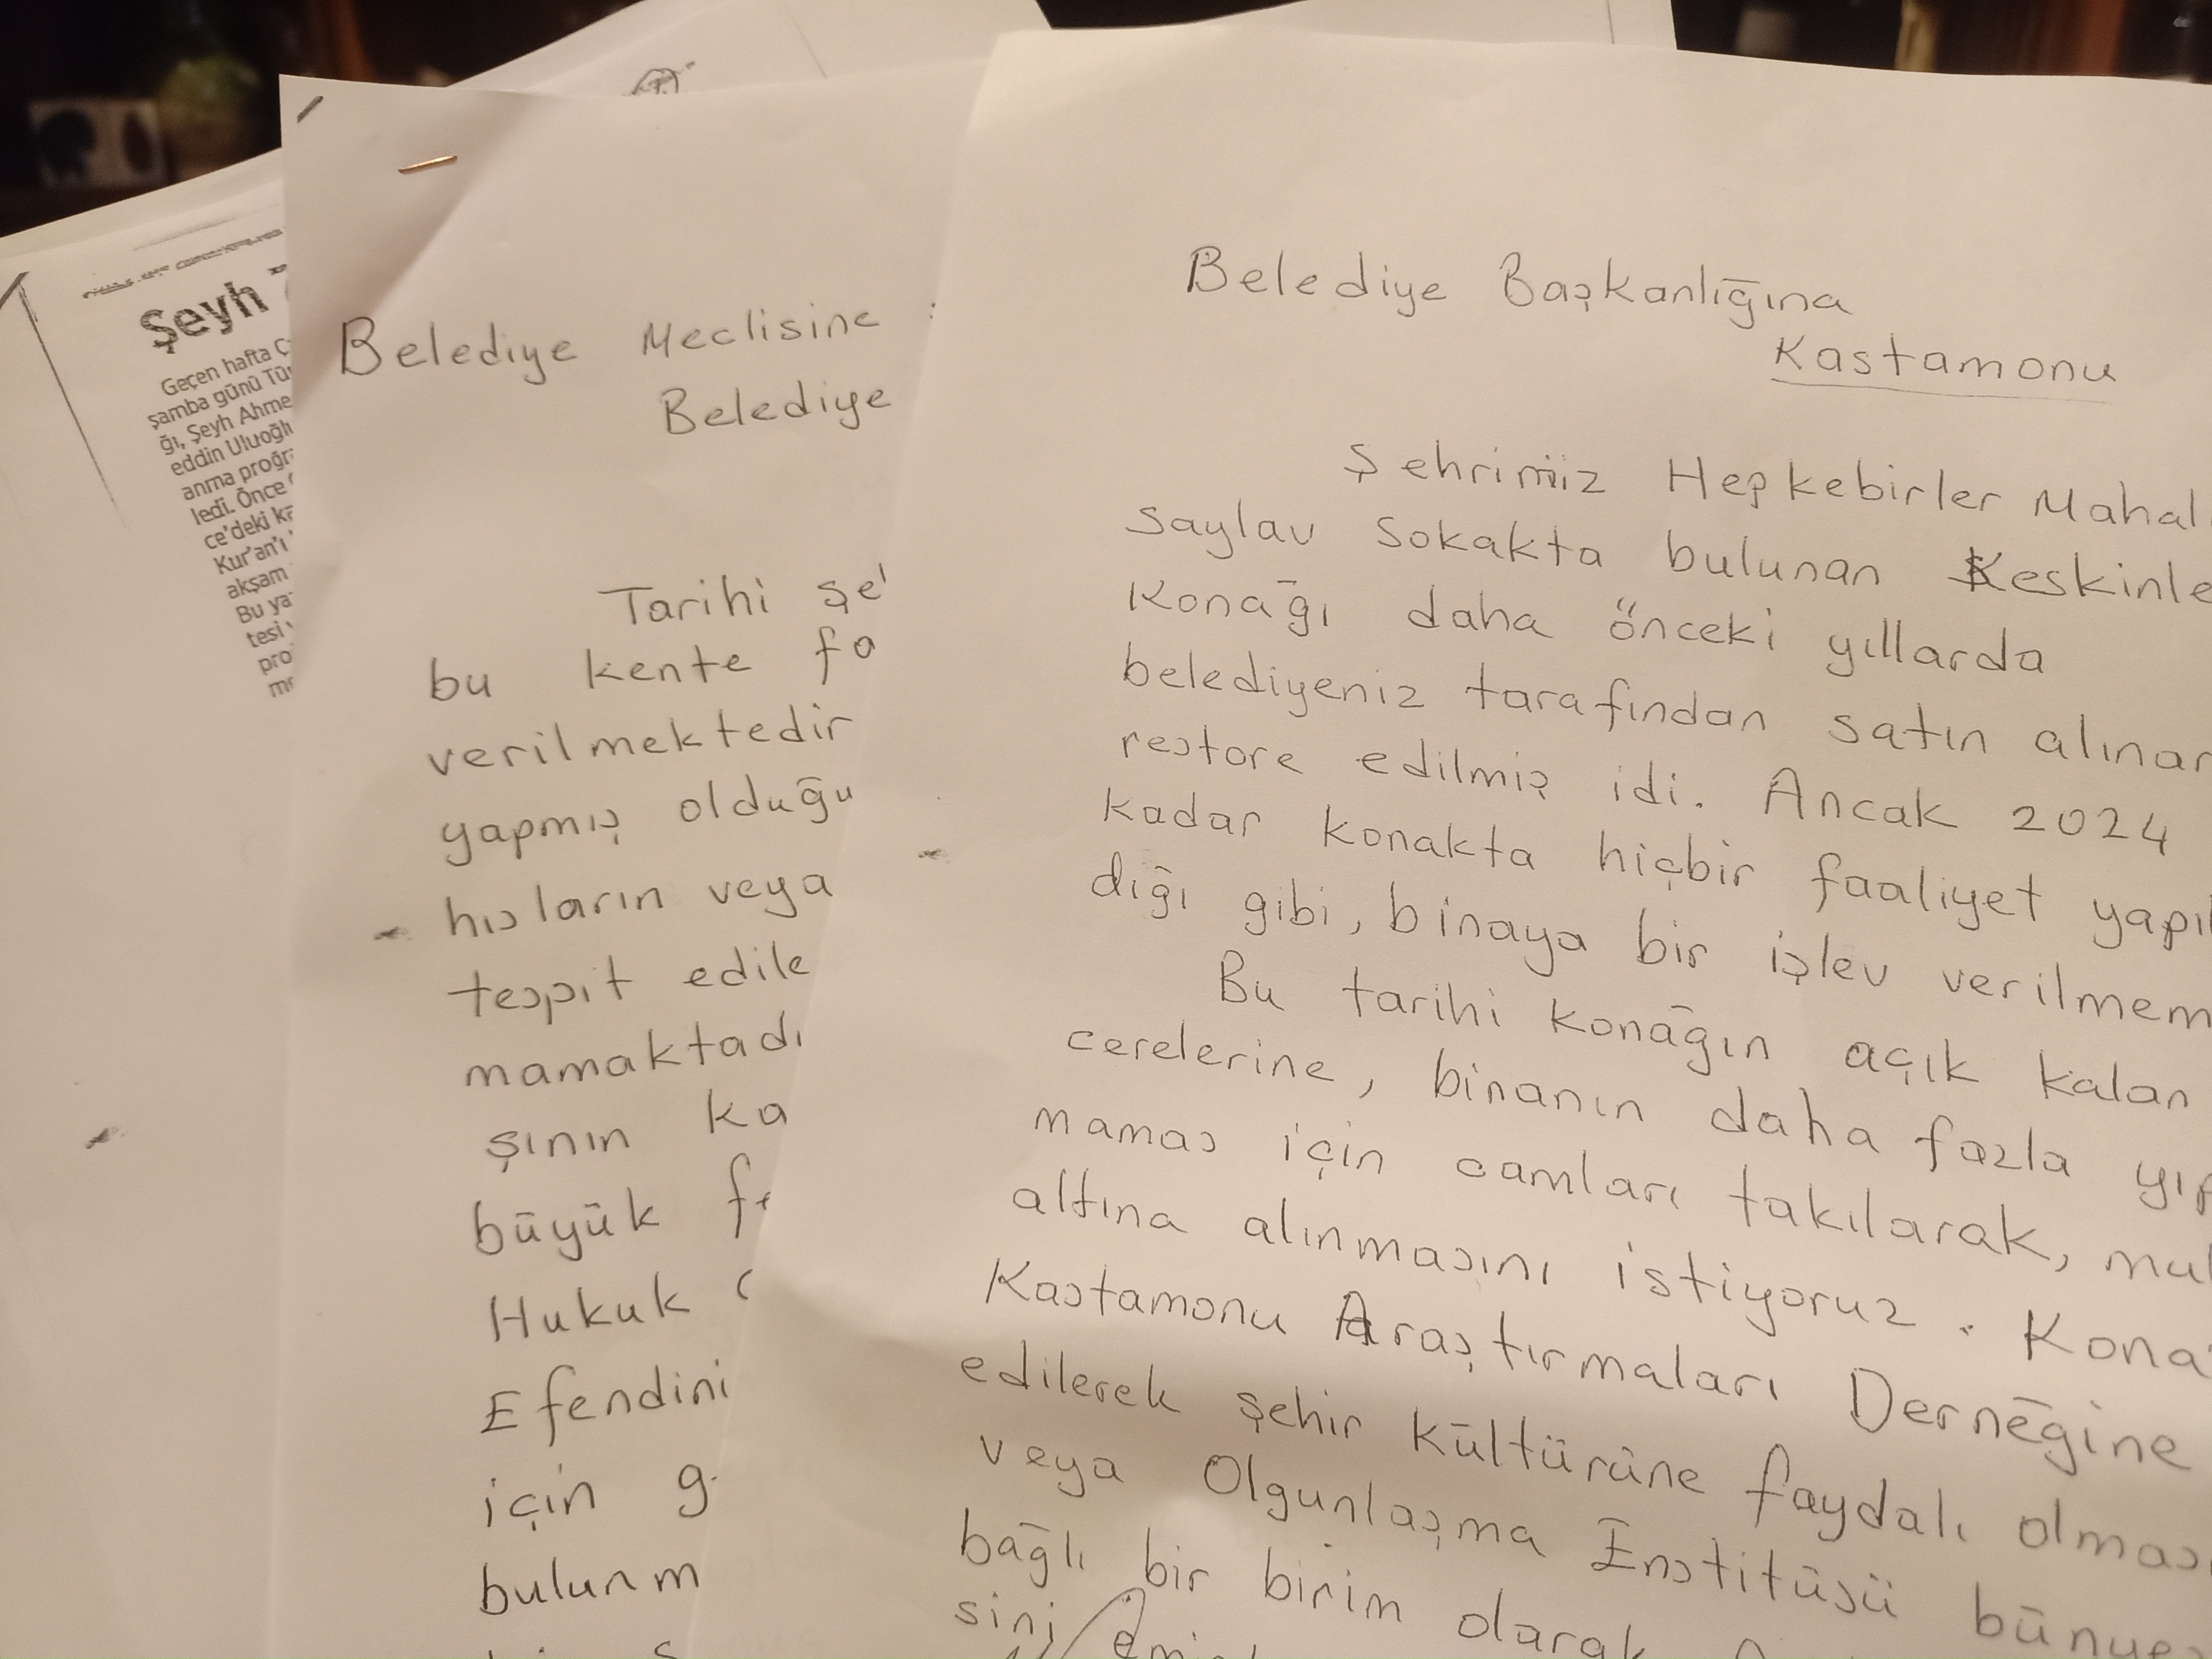 Şeyh
Geçen hafta Ç
şamba günü Tü
ğı, Şeyh Ahme
eddin Uluoğlu
anma proğr
ledi. Önce
ce'deki ka
Kur'an'ı
akşam
Bu ya
tesi
pro
me
Belediye Meclisine :
Belediye
Tarihi şe
bu kente fa
verilmektedir
yapmış olduğu
hısların veya
tespit edile
mamaktadı
şının ka
büyük fe
Hukuk
Efendini
için g
bulunm
Belediye Başkanlığına
Kastamonu
Şehrimiz Hepkebirler Mahal
Saylav Sokakta bulunan Keskinle
Konağı daha önceki yıllarda
belediyeniz tarafından satın alınar
restore edilmiş idi. Ancak 2024
kadar konakta hiçbir faaliyet yapıl
dığı gibi, binaya bir işlev verilmem
Bu tarihi konağın açık kalan
cerelerine, binanın daha fazla yıp
mamas için camları takılarak, muh
altına alınmasını istiyoruz. Kona
Kastamonu Araştırmaları Derneğine
edilerek şehir kültürüne faydalı olması
veya Olgunlaşma Enstitüsü bünye
bağlı bir birim olarak
sini